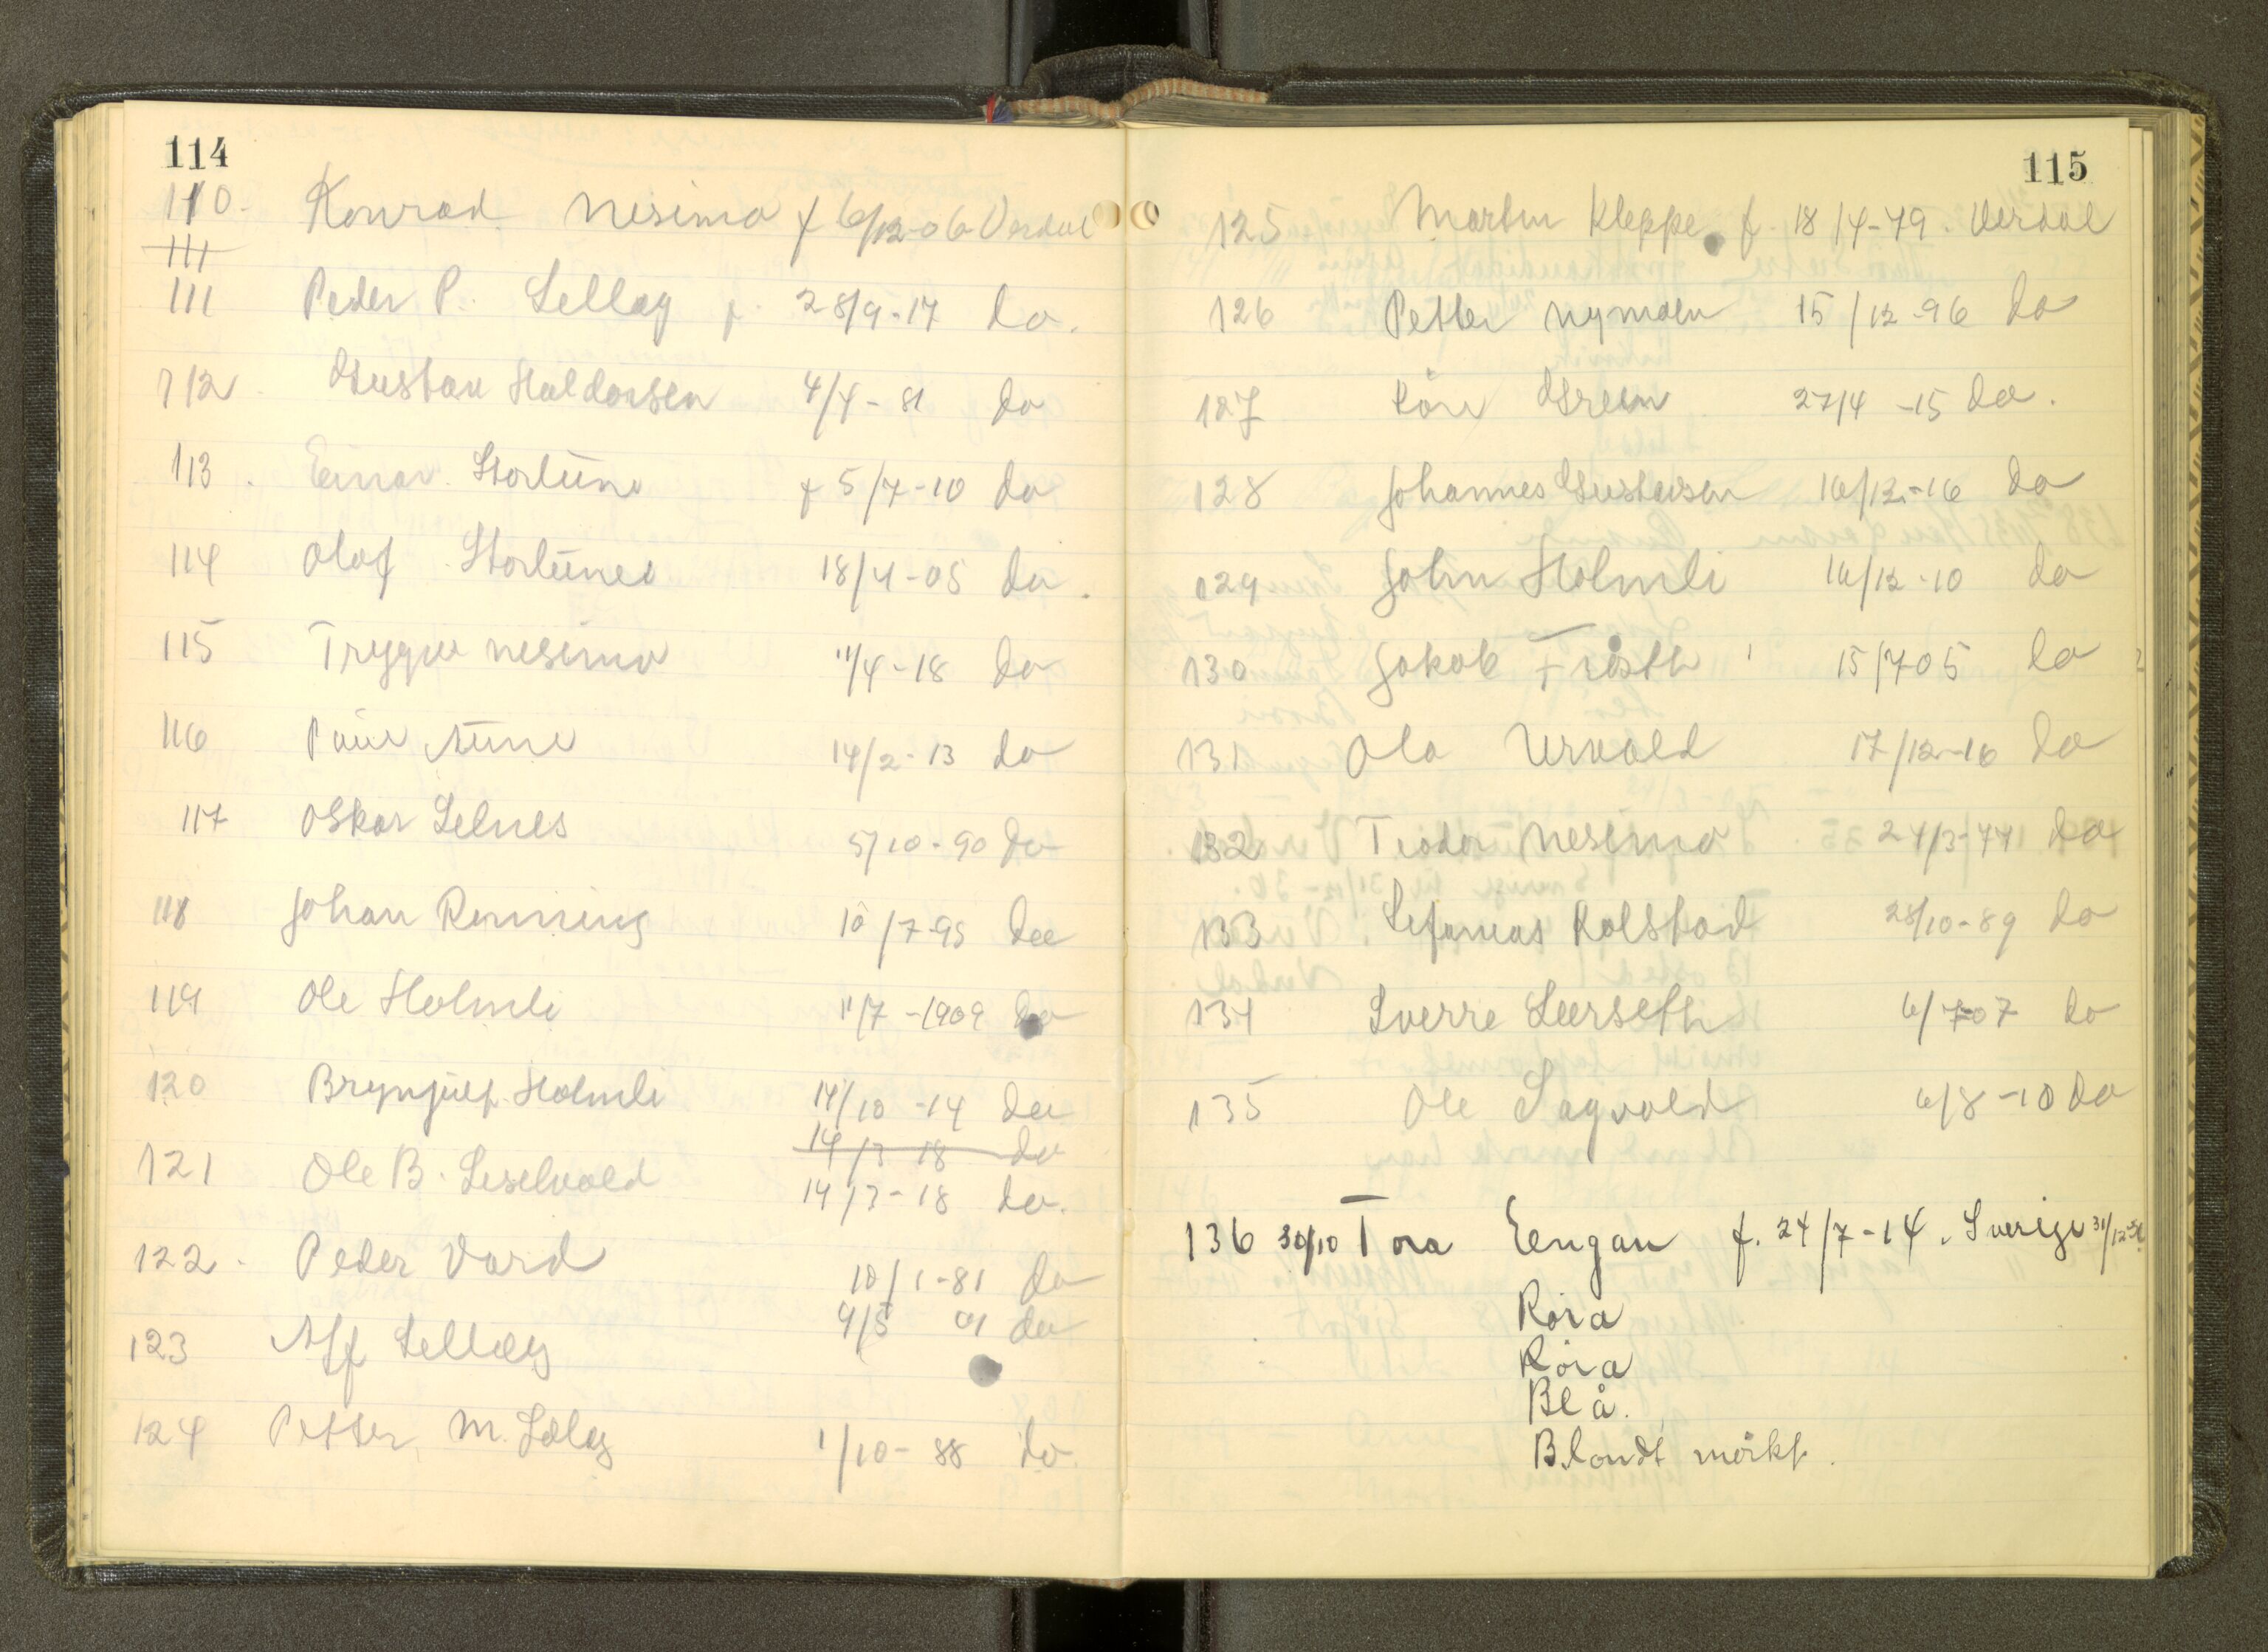 114
110. Konrad Nesimo f 6/12-06 Verdal
111
111 Peder P. Lellag f. 28/9-17 do.
112 Gustav Haldorsen 4/4-81 do
113. Einar Stortune f 5/7-10 do
114 Olaf Stortunes 18/4-05 do.
115 Trygve Nesimo 11/4-18 do
116 Paul Aune 14/2-13 do
117 Oskar Selnes 5/10-90 do
118 Johan Renning 10/7-95 do
119 Ole Holmli 11/7-1909 do
120 Brynjulf Holmli 14/10-14 do
14/3 18 do
121 Ole B. Leselvold 14/3-18 do.
122. Peder Vard 10/1-81 do
123 Alf Lellag 9/5 01 do
124 Petter M. 1/10-88 do.
115
125 Martin Kleppe f. 18/4-79. Verdal
126 Petter Nymoen 15/12-96 do
127 Kåre Green 27/4-15 do.
128 Johannes Gustavsen 16/12-16 do
129 John Holmli 16/12-10 do
130 Jakob Fråsth 15/7 05 do
131 Ola Urvold 17/12-16 do
132 Teodor Nesimo 24/3-77 do
133 Sefanias Rolstad 28/10-89 do
134 Sverre Leerseth 6/7-07 do
135 Ole Sagvold 6/8-10 do
136 30/10 Tora Eengan f. 24/7-14. Sverige 31/12
Röra
Röra
Blå.
Blondt mörkt.